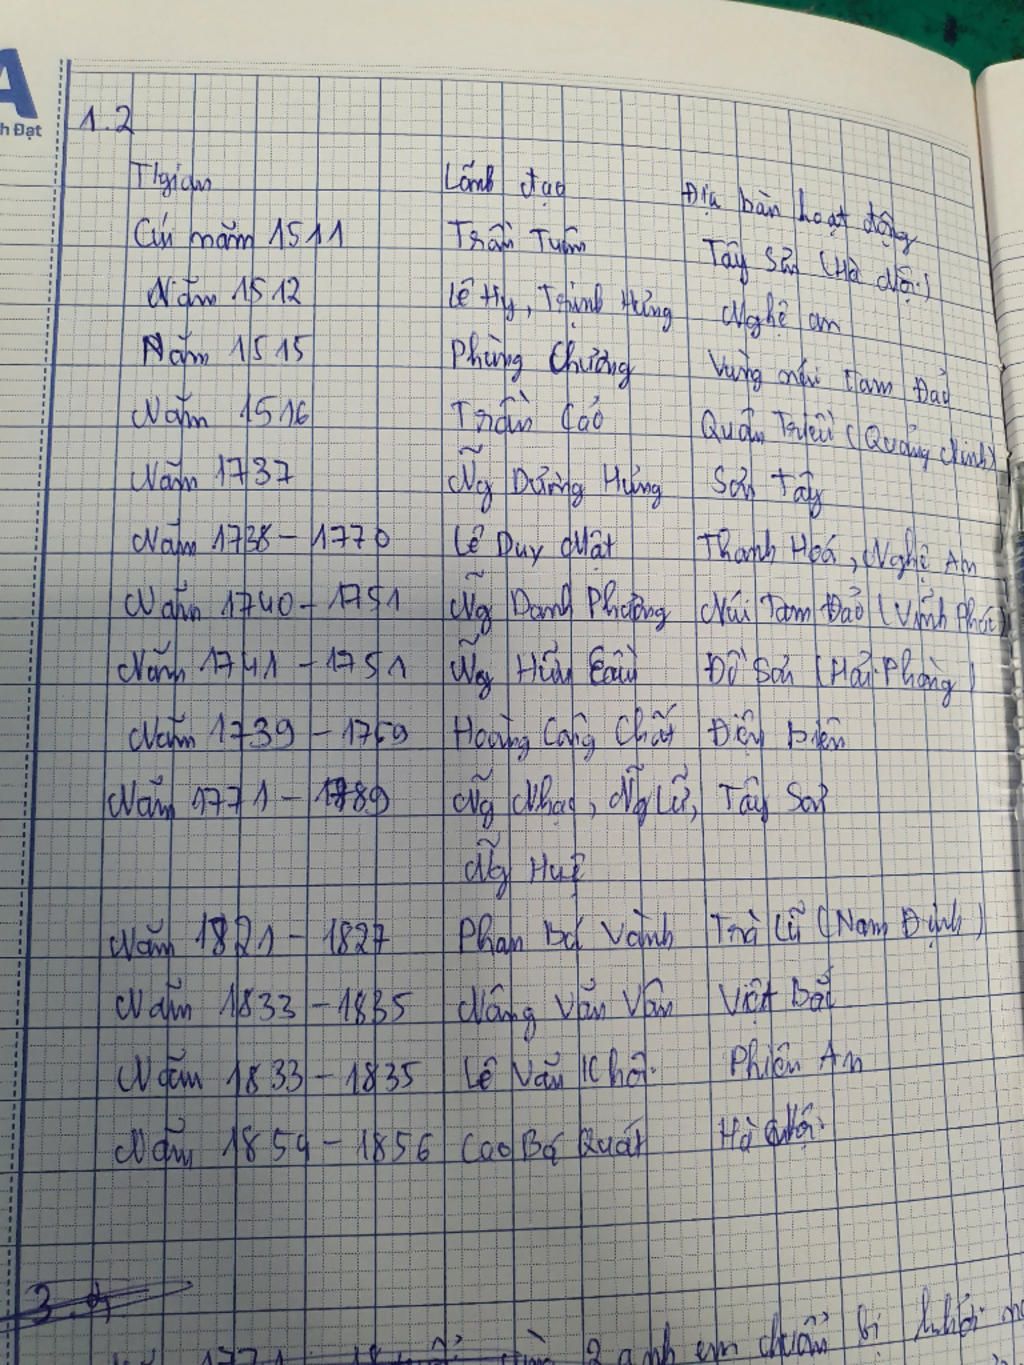 A
h Đạt
1.2
T/gian Lãnh đạo Địa bàn hoạt động
Cuối năm 1511 Trần Tuân Tây Sơn (Hà Nội)
Năm 1512 Lê Hy, Trịnh Hưng Nghệ an
Năm 1515 Phùng Chương Vùng núi tam Đảo
Năm 1516 Trần Cảo Quân Triều (Quảng Ninh)
Năm 1737 Ng̃ Dương Hưng Sơn Tây
Năm 1738 - 1770 Lê Duy Mật Thanh Hoá, Nghệ An
Năm 1740 - 1751 Ng̃ Danh Phương Núi Tam Đảo (Vĩnh Phúc)
Năm 1741 - 1751 Ng̃ Hữu Cầu Đồ Sơn (Hải Phòng)
Năm 1739 - 1769 Hoàng Công Chất Điện biên
Năm 1771 - 1789 Ng̃ Nhạc, Ng̃ Lữ, Tây Sơn
Ng̃ Huệ
Năm 1821 - 1827 Phan Bá Vành Trà Lũ (Nam Định)
Năm 1833 - 1835 Nông Văn Vân Việt Bắc
Năm 1833 - 1835 Lê Văn Khôi Phiên An
Năm 1854 - 1856 Cao Bá Quát Hà Nội
1771 2 anh em chuẩn bị khởi